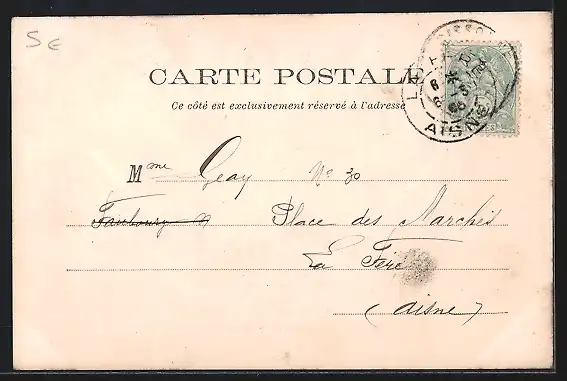 5€
CARTE POSTALE
Ce côté est exclusivement réservé à l'adresse
AISNE
Mme Geay No 30
Faubourg Place des Marchés
La Fère
(Aisne)